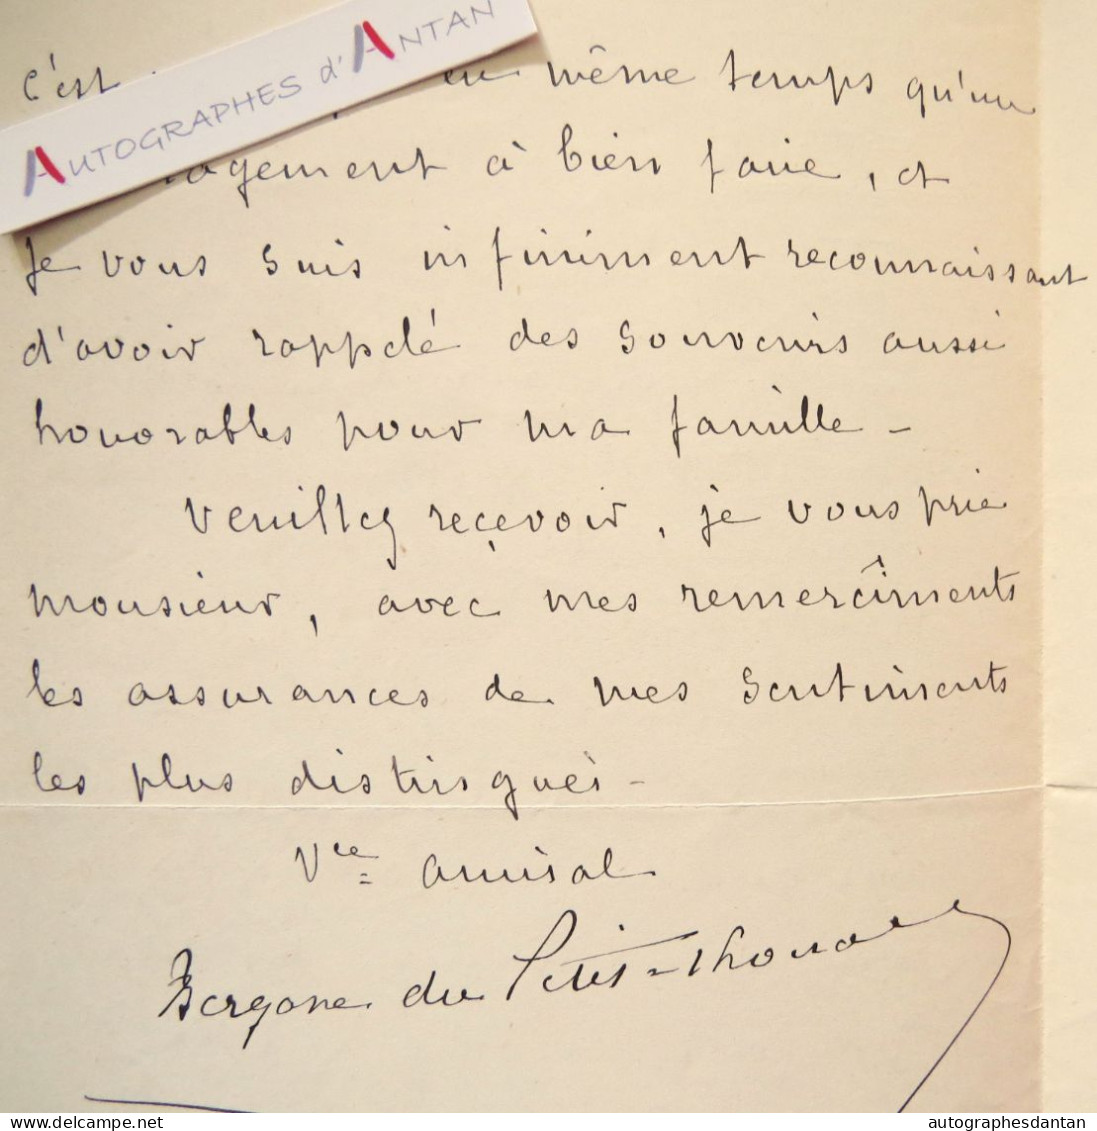 C'est en même temps qu'un
AUTOGRAPHES d'ANTAN
ragement à bien faire, et
je vous suis infiniment reconnaissant
d'avoir rappelé des souvenirs aussi
honorables pour ma famille -
Veuillez reçevoir, je vous prie
monsieur, avec mes remercîments
les assurances de mes sentiments
les plus distingués -
Vce amiral
Bergasse du Petit-Thouars
autographesdantan